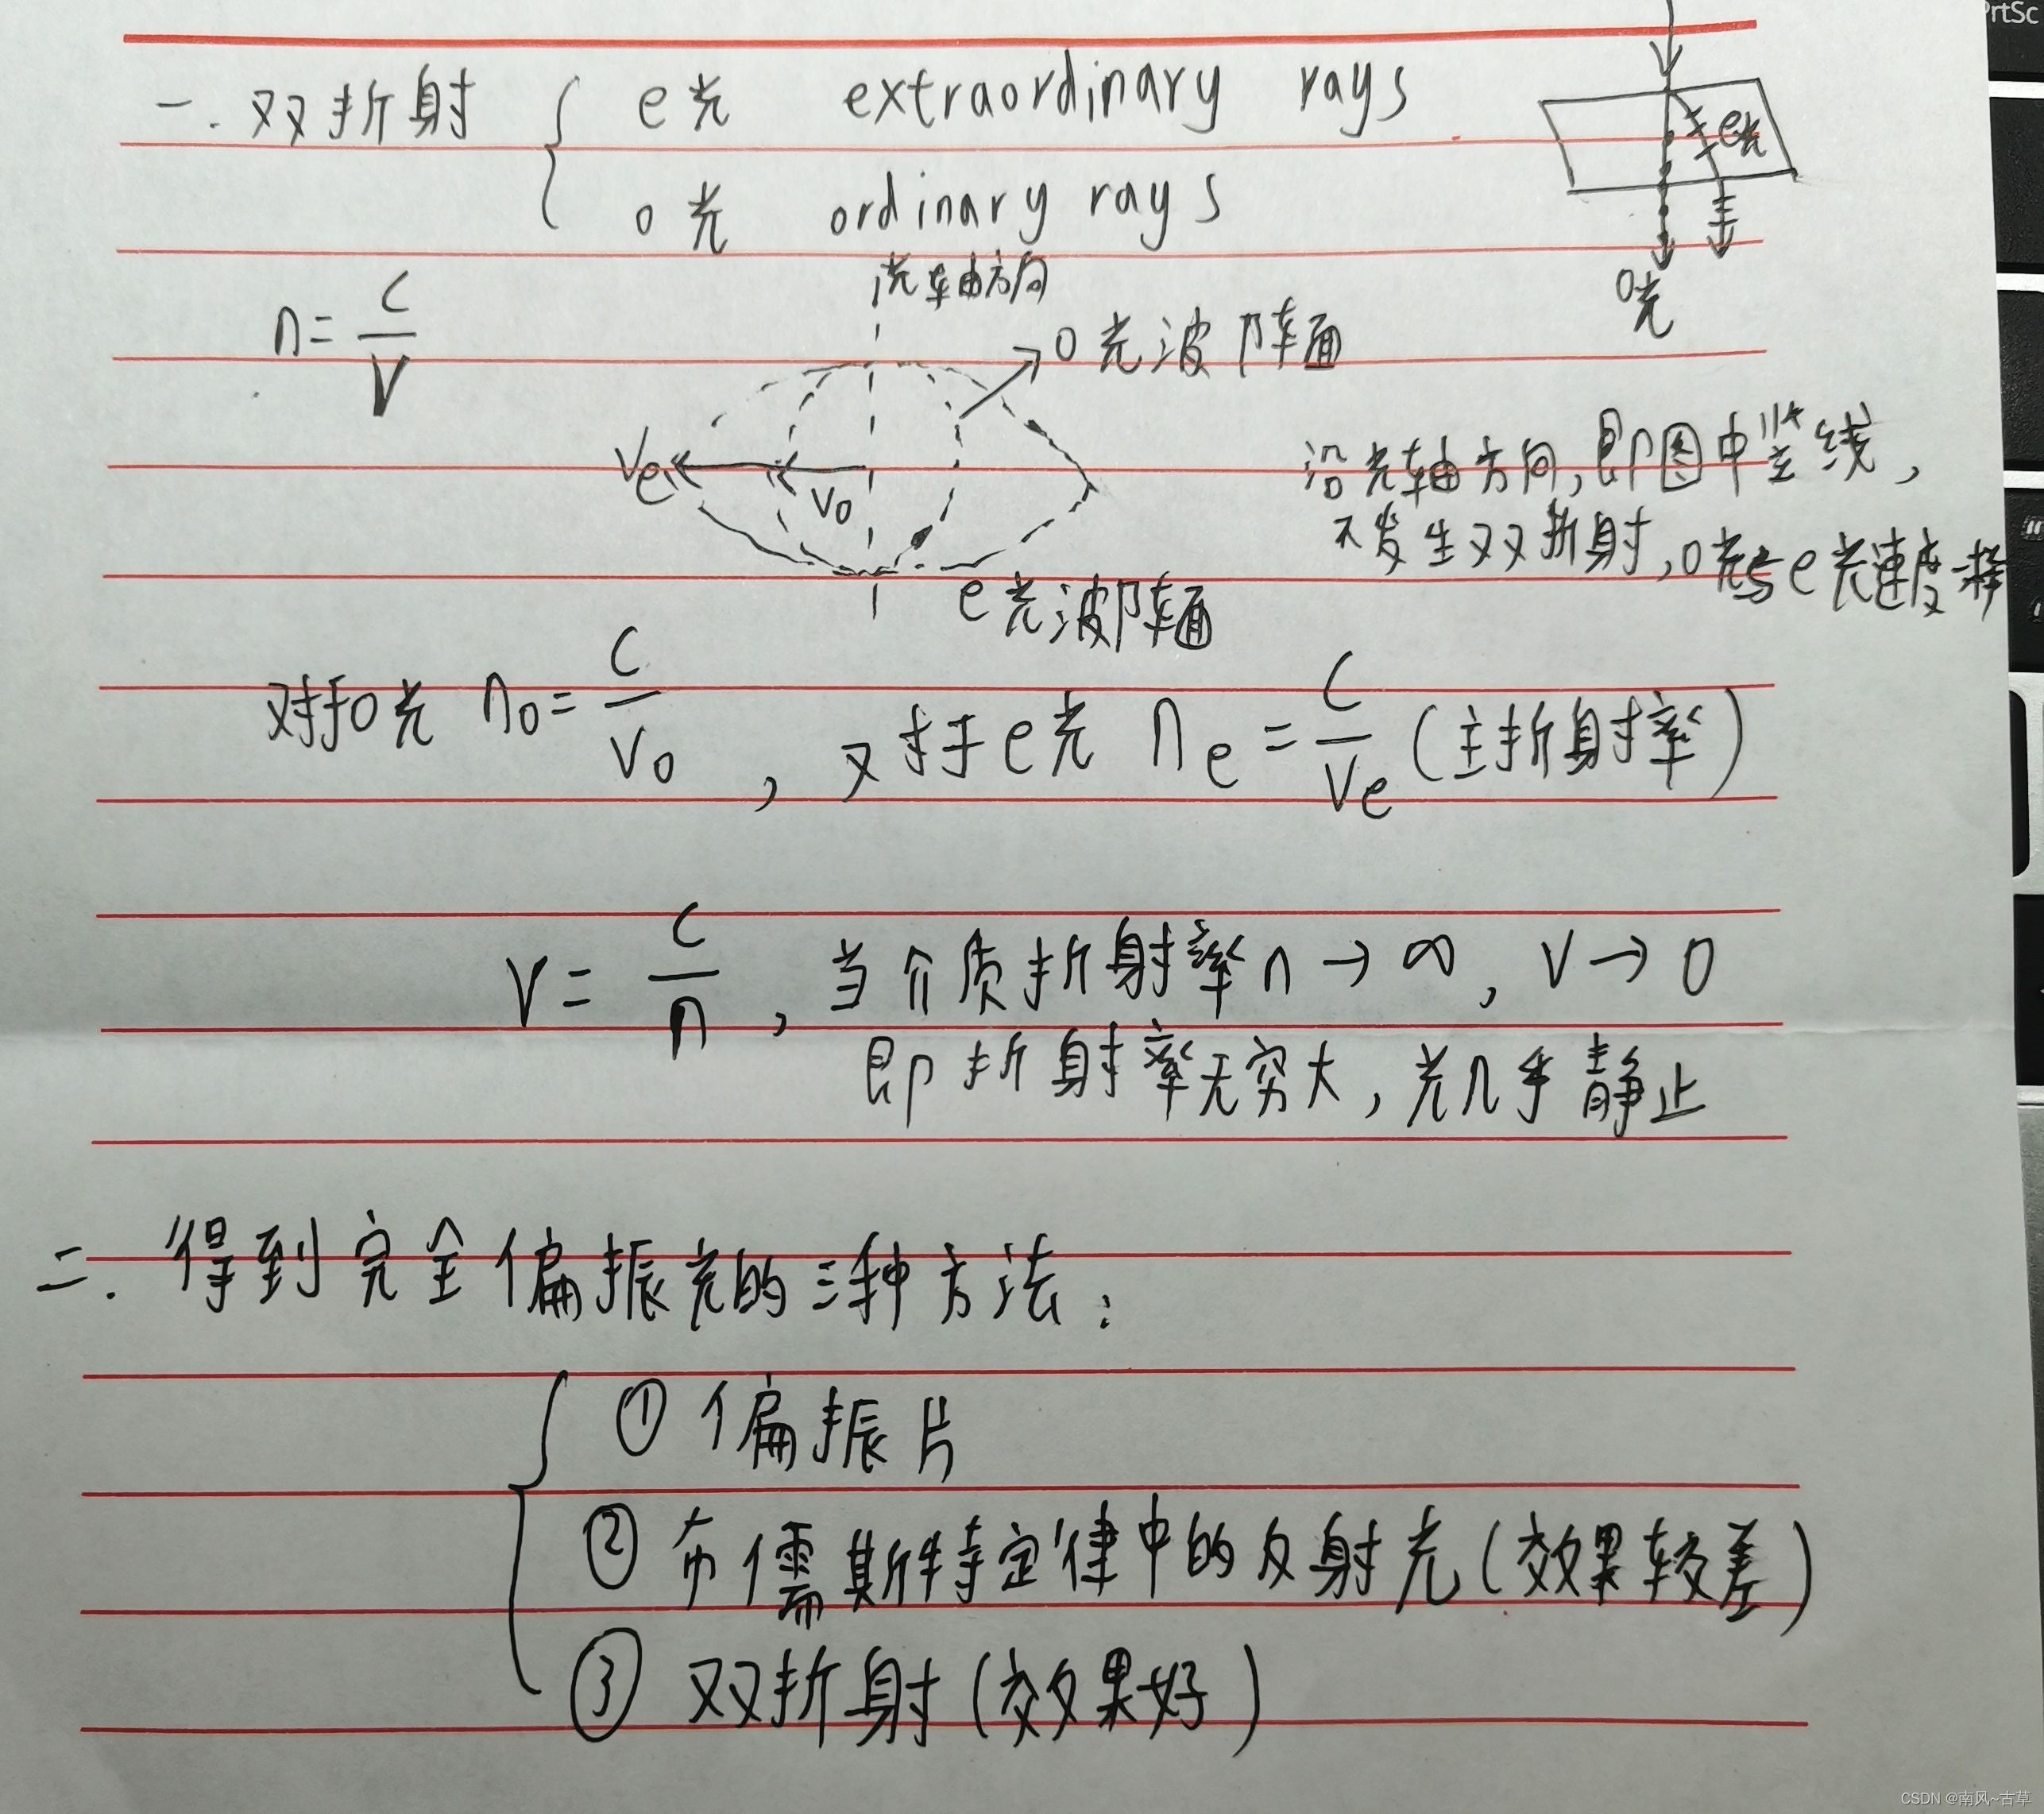 PrtSc
一. 双折射 { e光 extraordinary rays
o光 ordinary rays
e光
o光
光轴方向
n = c/v
o光波阵面
ve
vo
沿光轴方向,即图中竖线,
不发生双折射,o光与e光速度一样
e光波阵面
对于o光 no = c/vo , 对于e光 ne = c/ve (主折射率)
v = c/n , 当介质折射率n→∞, v→0
即折射率无穷大, 光几乎静止
二. 得到完全偏振光的三种方法:
① 偏振片
② 布儒斯特定律中的反射光(效果较差)
③ 双折射(效果好)
CSDN @南风~古草